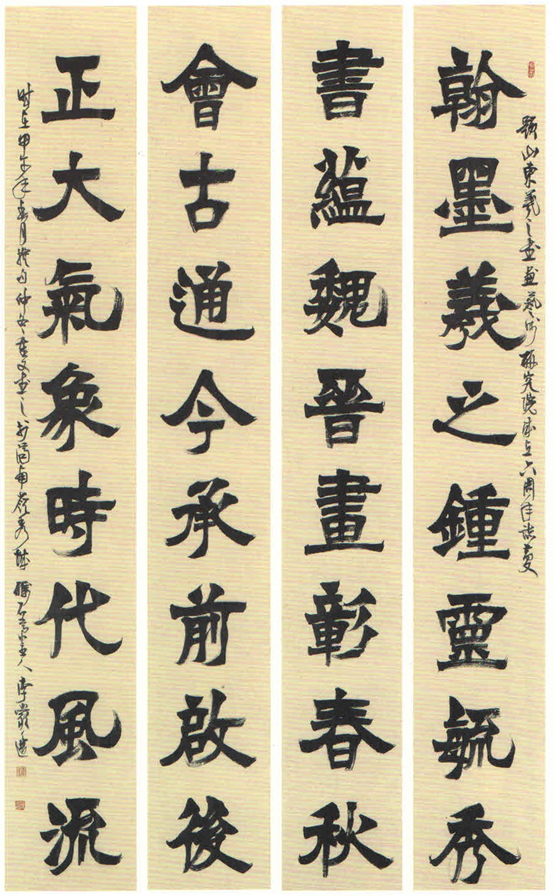 題山東羲之書畫藝術研究院成立六周年誌慶
翰墨羲之鍾靈毓秀
書蘊魏晉畫彰春秋
會古通今承前啟後
正大氣象時代風流
時在甲午年春月撰句仲書之於秀城主人李